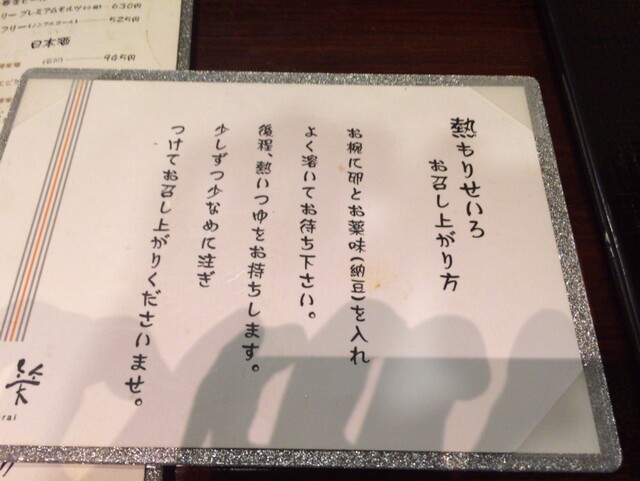 熱もりせいろ
お召し上がり方
お椀に卵とお薬味(納豆)を入れ
よく溶いてお待ち下さい。
後程、熱いつゆをお持ちします。
少しずつ少なめに注ぎ
つけてお召し上がりくださいませ。
リー プレミアムモルツ 630円
フリー(ノンアルコール) 525円
日本酒
905円